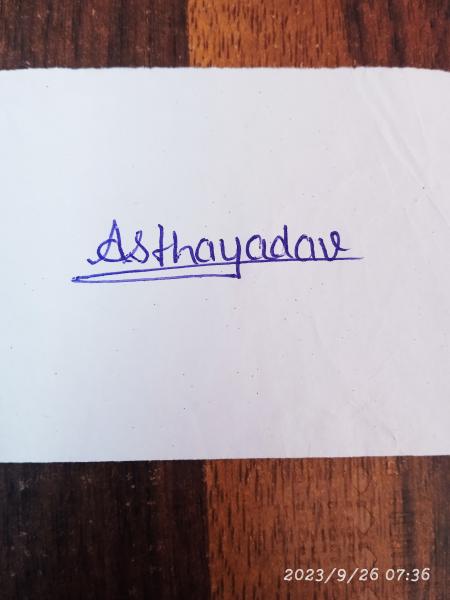 Asthayadav
2023/9/26 07:36